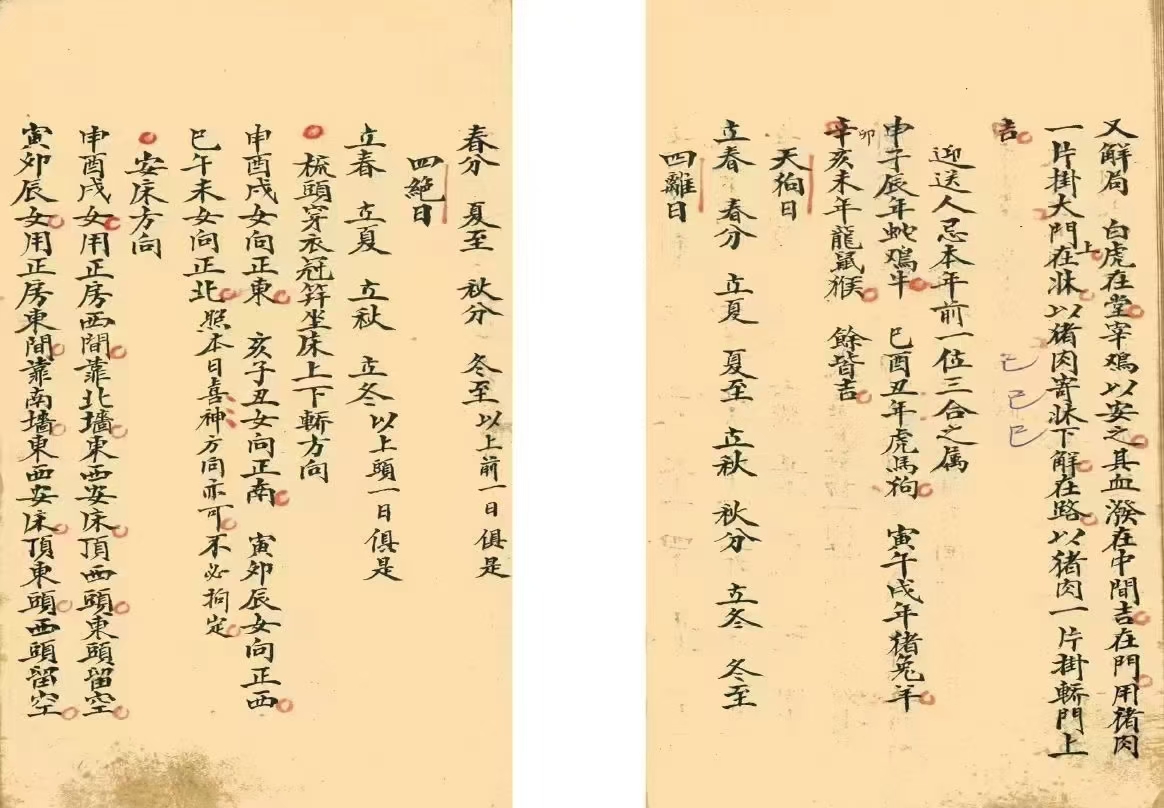 又解局　白虎在堂宰鳮以安之其血潑在中間吉在門用猪肉
一片掛大門上在牀以猪肉寄牀下解在路以猪肉一片掛轎門上
吉
已已已
迎送人忌本年前一位三合之属
申子辰年蛇鳮牛　巳酉丑年虎馬狗　寅午戌年猪兔羊
辛卯亥未年龍鼠猴　餘皆吉
天狗日
立春　春分　立夏　夏至　立秋　秋分　立冬　冬至
四離日
春分　夏至　秋分　冬至以上前一日俱是
四絕日
立春　立夏　立秋　立冬以上頭一日俱是
梳頭穿衣冠笄坐床上下轎方向
申酉戌女向正東　亥子丑女向正南　寅卯辰女向正西
巳午未女向正北照本日喜神方向亦可不必拘定
安床方向
申酉戌女用正房西間靠北墻東西安床頂西頭東頭留空
寅卯辰女用正房東間靠南墻東西安床頂東頭西頭留空